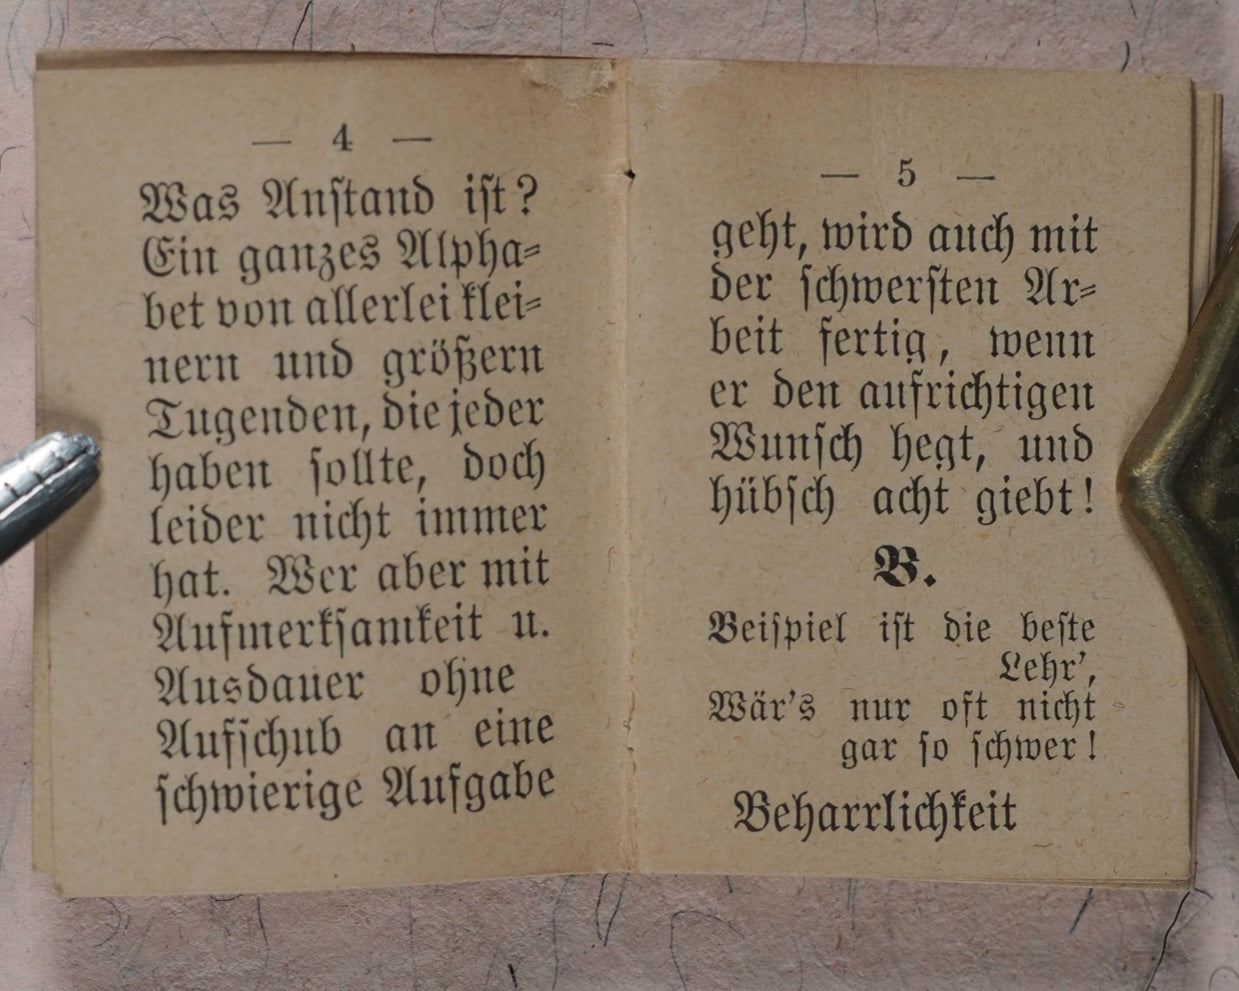 — 4 —
Was Anstand ist?
Ein ganzes Alpha-
bet von allerlei klei-
nern und größern
Tugenden, die jeder
haben sollte, doch
leider nicht immer
hat. Wer aber mit
Aufmerksamkeit u.
Ausdauer ohne
Aufschub an eine
schwierige Aufgabe
— 5 —
geht, wird auch mit
der schwersten Ar-
beit fertig, wenn
er den aufrichtigen
Wunsch hegt, und
hübsch acht giebt!
B.
Beispiel ist die beste
Lehr',
Wär's nur oft nicht
gar so schwer!
Beharrlichkeit